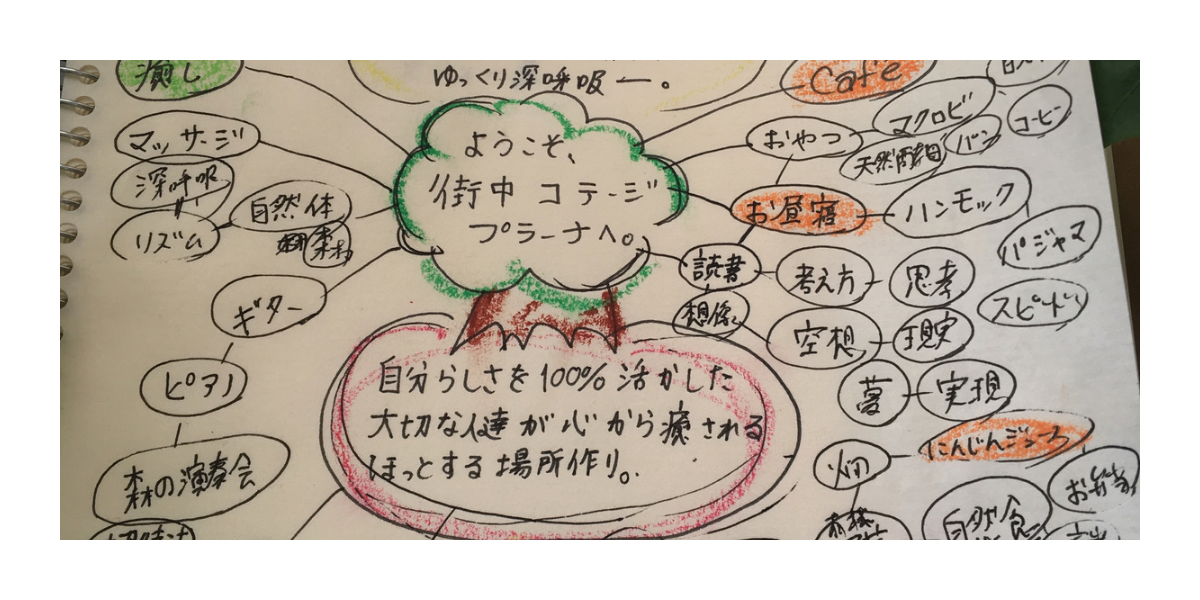 癒し
ゆっくり深呼吸ー。
Cafe
マッサージ
深呼吸
リズム
自然体
森林
ギター
ピアノ
森の演奏会
ようこそ、
街中コテージ
プラーナへ。
おやつ
マクロビ
天然酵母
パン
コーヒー
お昼寝
ハンモック
パジャマ
読書
考え方
思考
スピード
想像
空想
現実
夢
実現
自分らしさを100%活かした
大切な人達が心から癒される
ほっとする場所作り。
畑
にんじんジュース
お弁当
自然食